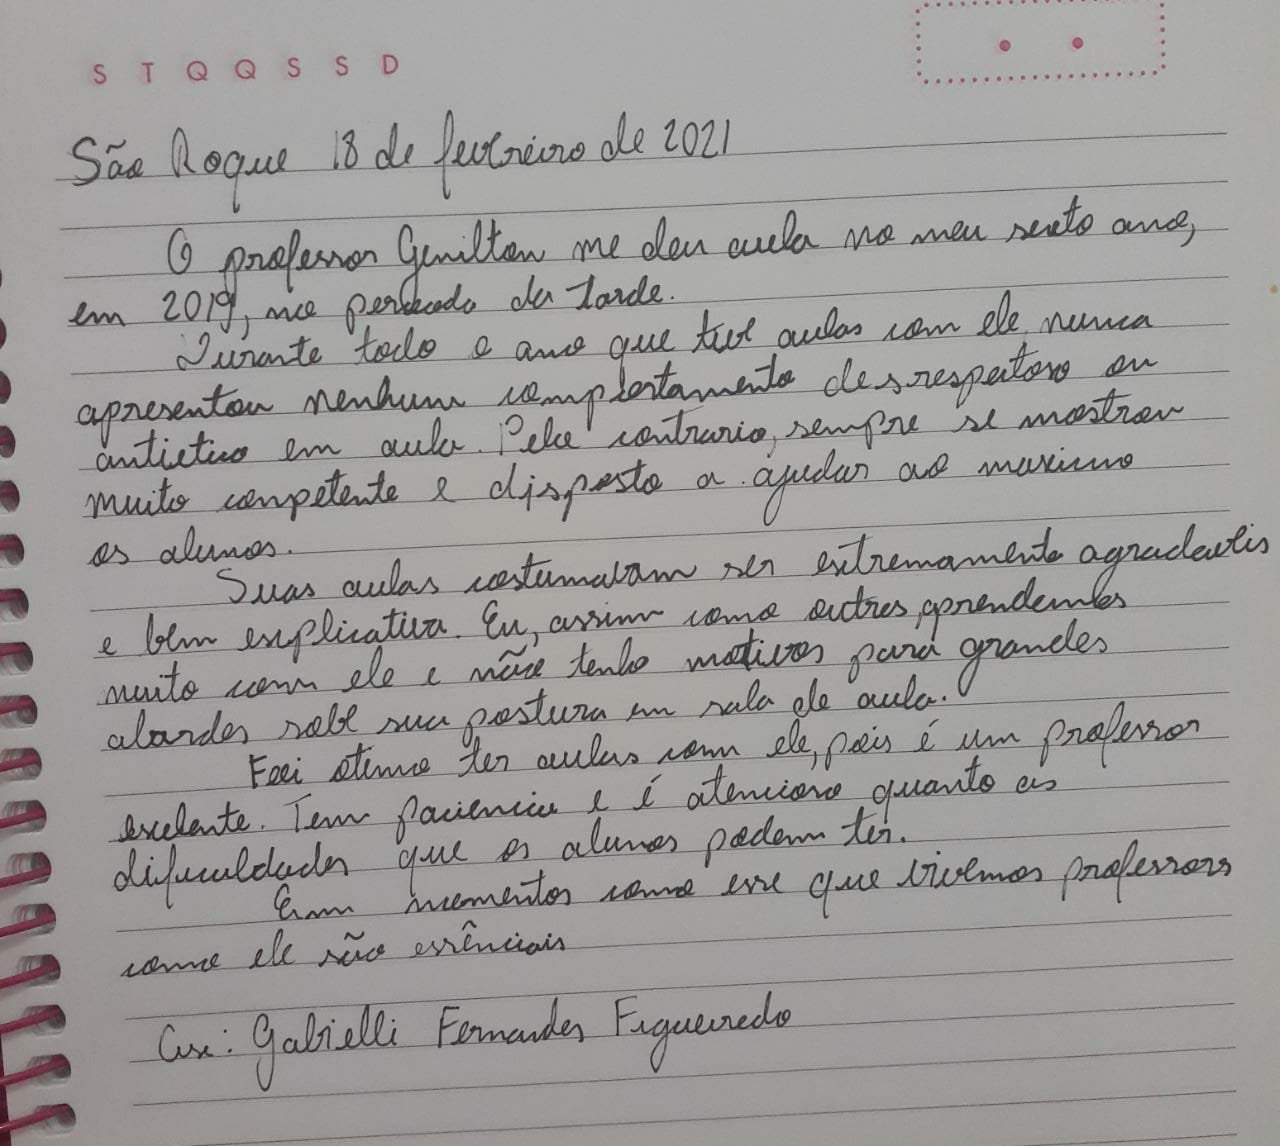 S T Q Q S S D
São Roque 18 de fevereiro de 2021
O professor Genilton me deu aula no meu sexto ano,
em 2019, no período da tarde.
Durante todo o ano que tive aulas com ele nunca
apresentou nenhum comportamento desrespeitoso ou
antietico em aula. Pelo contrario, sempre se mostrou
muito competente e disposto a ajudar ao maximo
os alunos.
Suas aulas costumavam ser extremamente agradaveis
e bem explicativa. Eu, assim como outros, aprendemos
muito com ele e não tenho motivos para grandes
alardes sobe sua postura em sala de aula.
Foi otimo ter aulas com ele, pois é um professor
exelente. Tem paciencia e é atencioso quanto as
dificuldades que os alunos podem ter.
Em momentos como esse que vivemos professores
como ele são essênciais
Ass: Gabrielli Fernandes Figueiredo